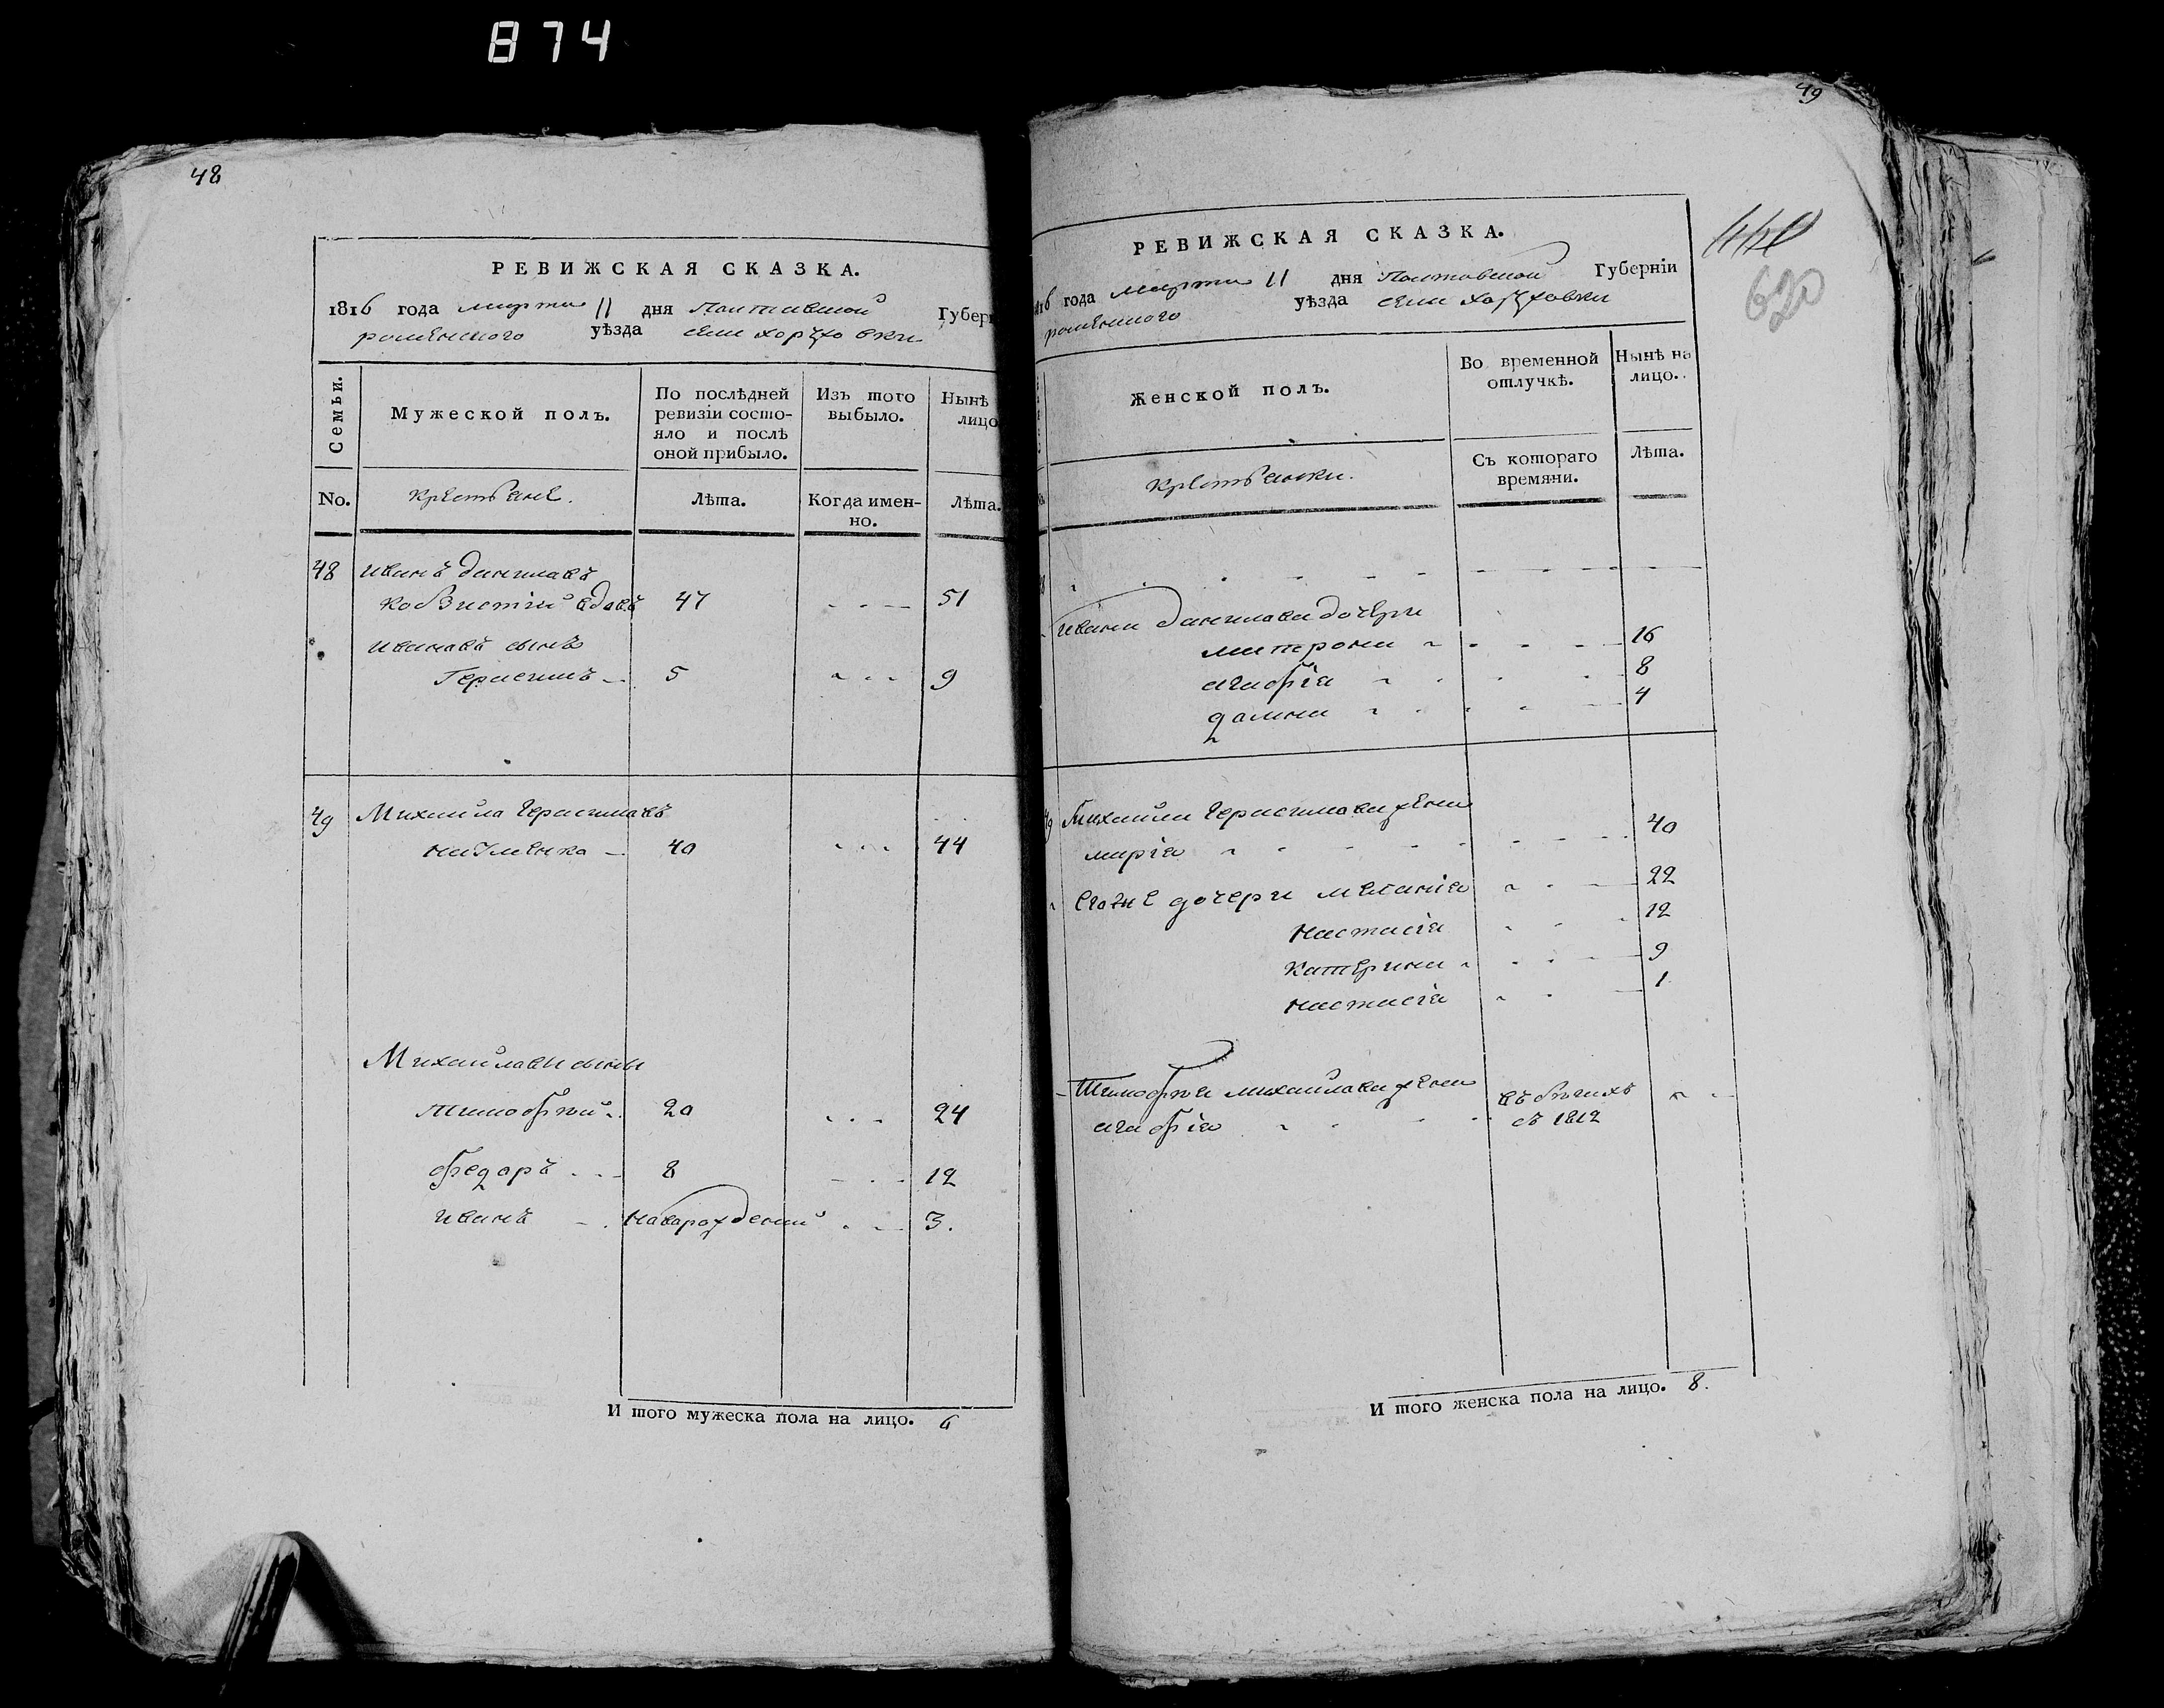 874
48
РЕВИЖСКАЯ СКАЗКА.
1816 года марта 11 дня Полтавской Губер
роменского уѣзда села хоружовки
Семьи.
Мужеской полъ.
По послѣдней ревизіи состо-
яло и послѣ
оной прибыло.
Изъ того
выбыло.
Нынѣ
лицо
No.
крестьяне.
Лѣта.
Когда имен-
но.
Лѣта.
48 иванъ даниловъ
вдовъ 47 51
ивановъ сынъ
Герасимъ 5 9
49 Михайла Герасимовъ
40 44
Михайловы сыны
тимофѣй 20 24
федоръ 8 12
иванъ новорождений 3.
И того мужеска пола на лицо. 6
49
РЕВИЖСКАЯ СКАЗКА.
1816 года марта 11 дня Полтавской Губерніи
роменского уѣзда села хоружовки
Женской полъ.
Во временной
отлучкѣ.
Нынѣ на
лицо.
крестьянки.
Съ котораго
времяни.
Лѣта.
ивана данилова дочери
матрона 16
агафія 8
домна 4
49 Михайла Герасимова жена
марія 40
егоже дочери меланія 22
настасія 12
катерина 9
настасія 1
тимофѣя михайлова жена
агафія въ бѣгахъ
съ 1812
И того женска пола на лицо. 8.
620